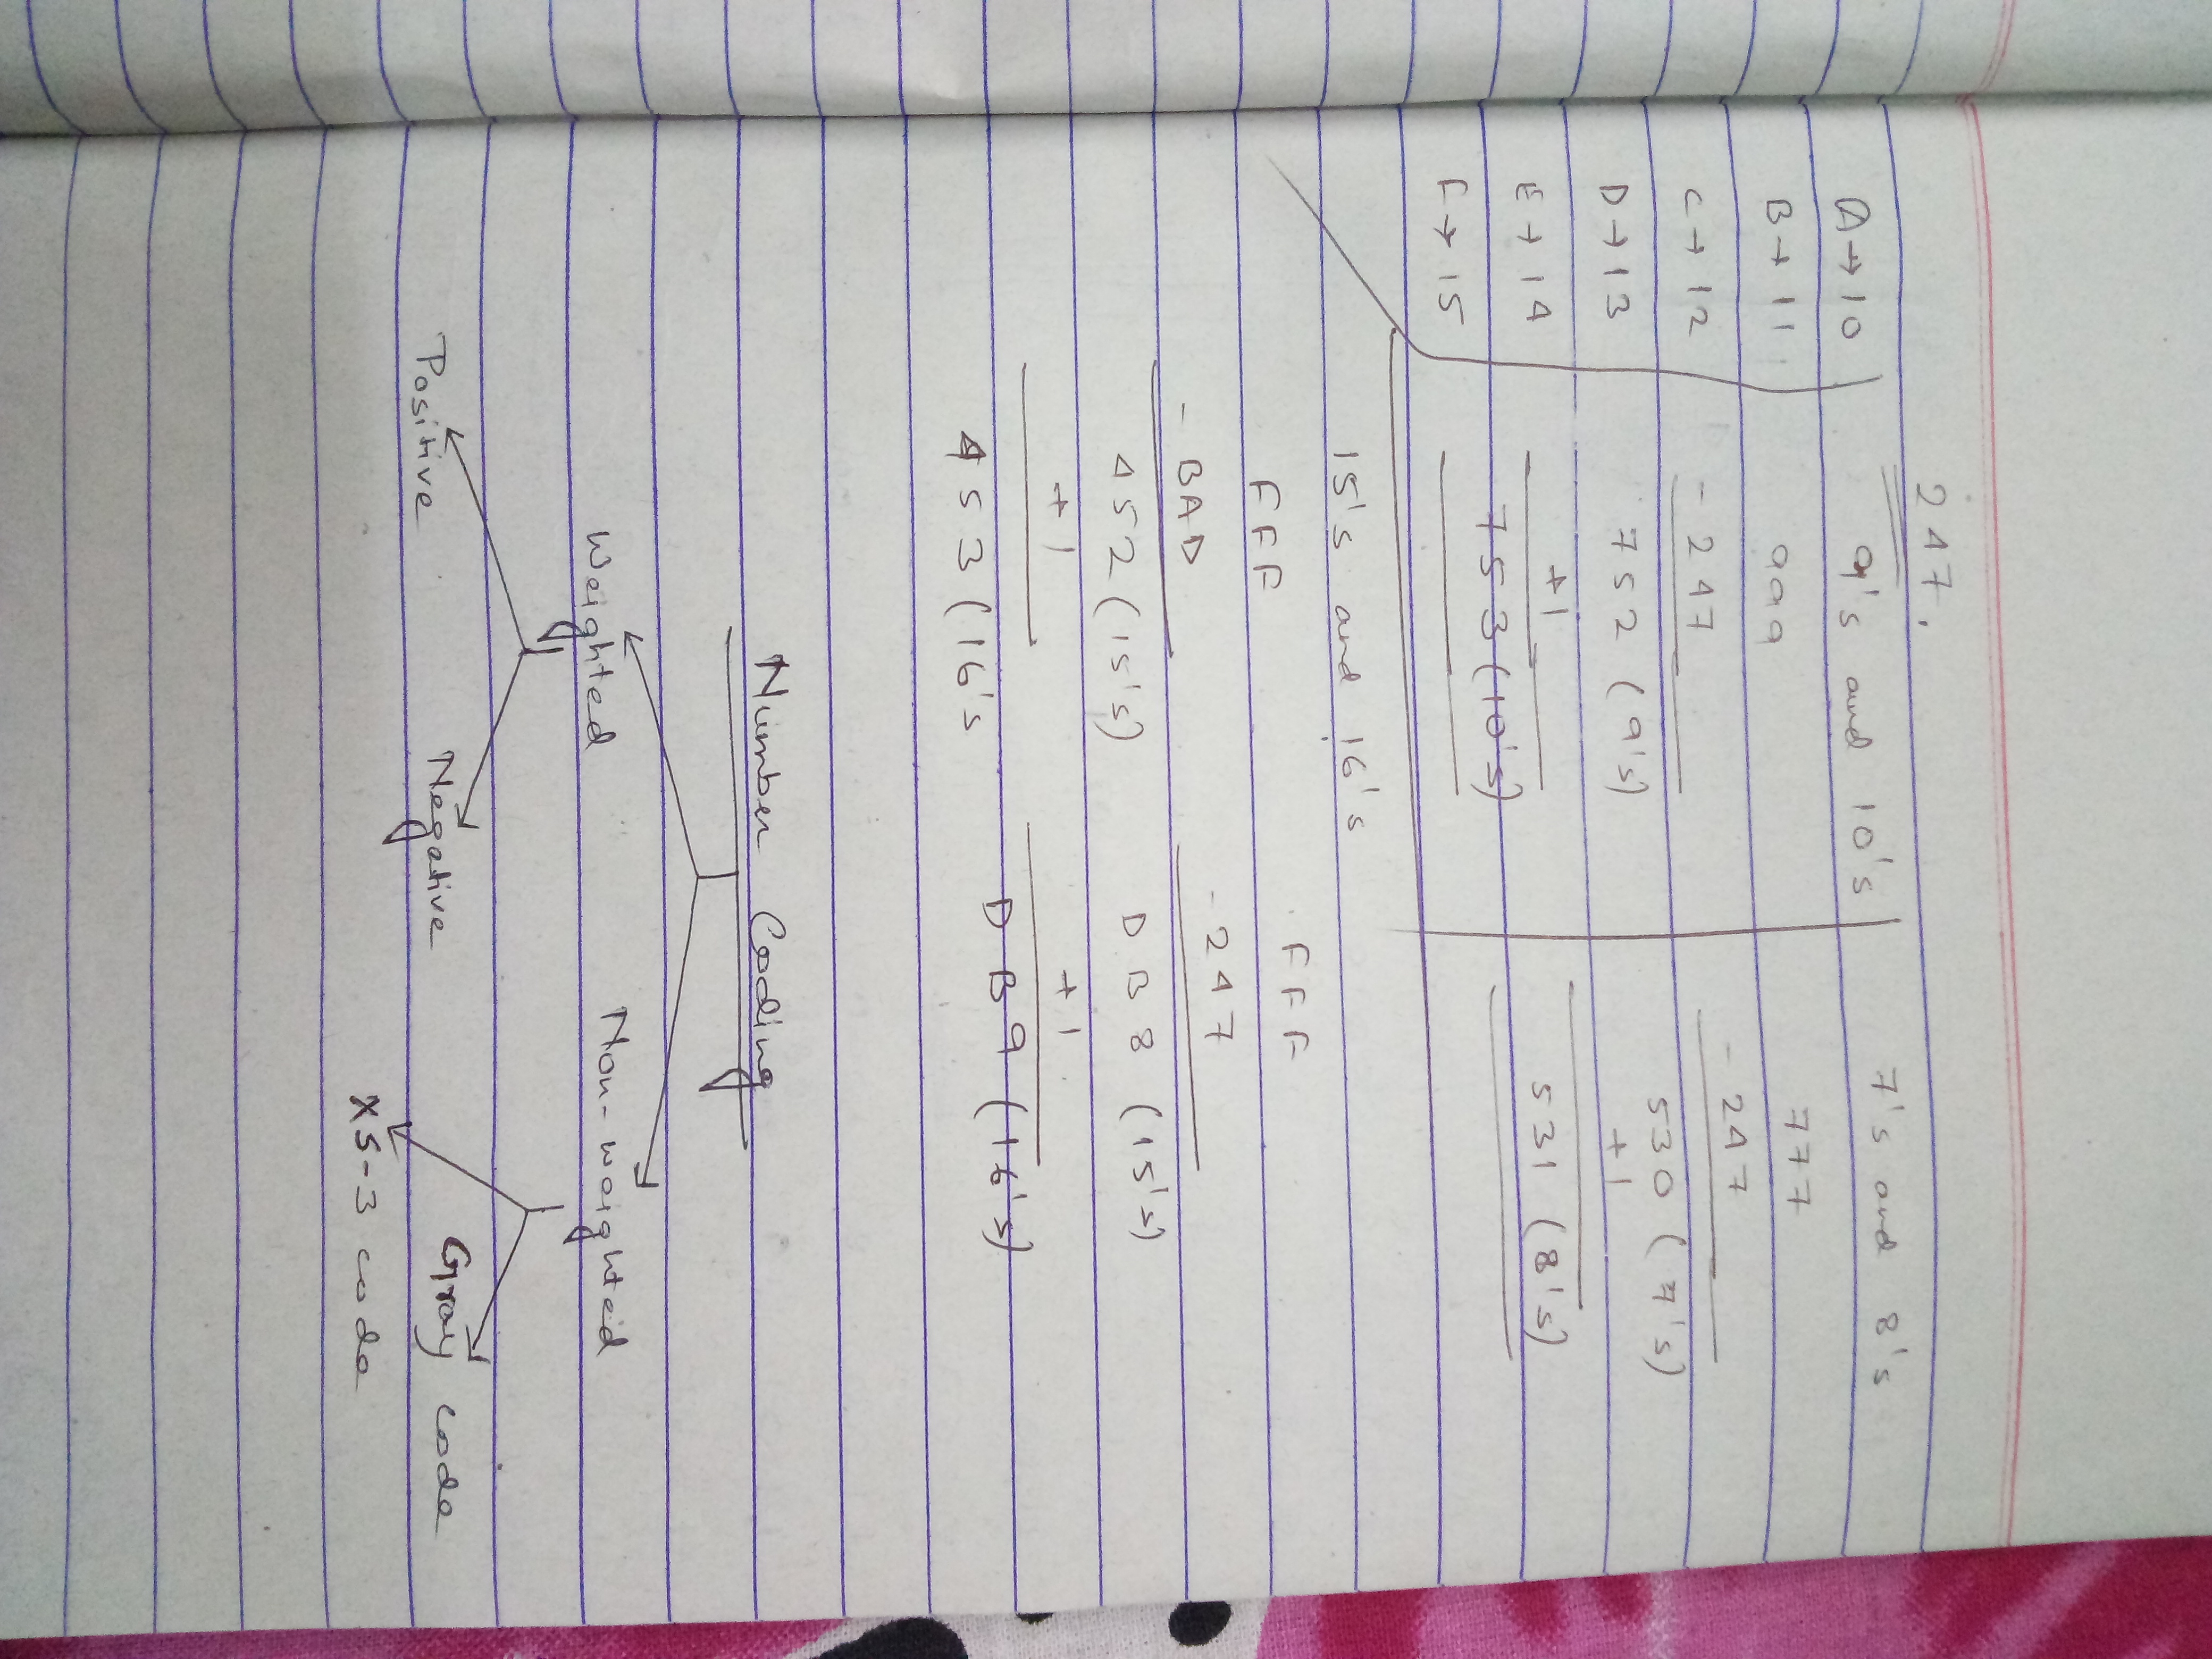 247.
A→10
B→11
C→12
D→13
E→14
F→15
9's and 10's
999
- 247
752 (9's)
+1
753 (10's)
7's and 8's
777
- 247
530 (7's)
+1
531 (8's)
15's and 16's
FFF
- BAD
452 (15's)
+1
453 (16's
FFF
- 247
DB8 (15's)
+1
DB9 (16's)
Number Coding
Weighted Non-weighted
Positive Negative Gray code
XS-3 code